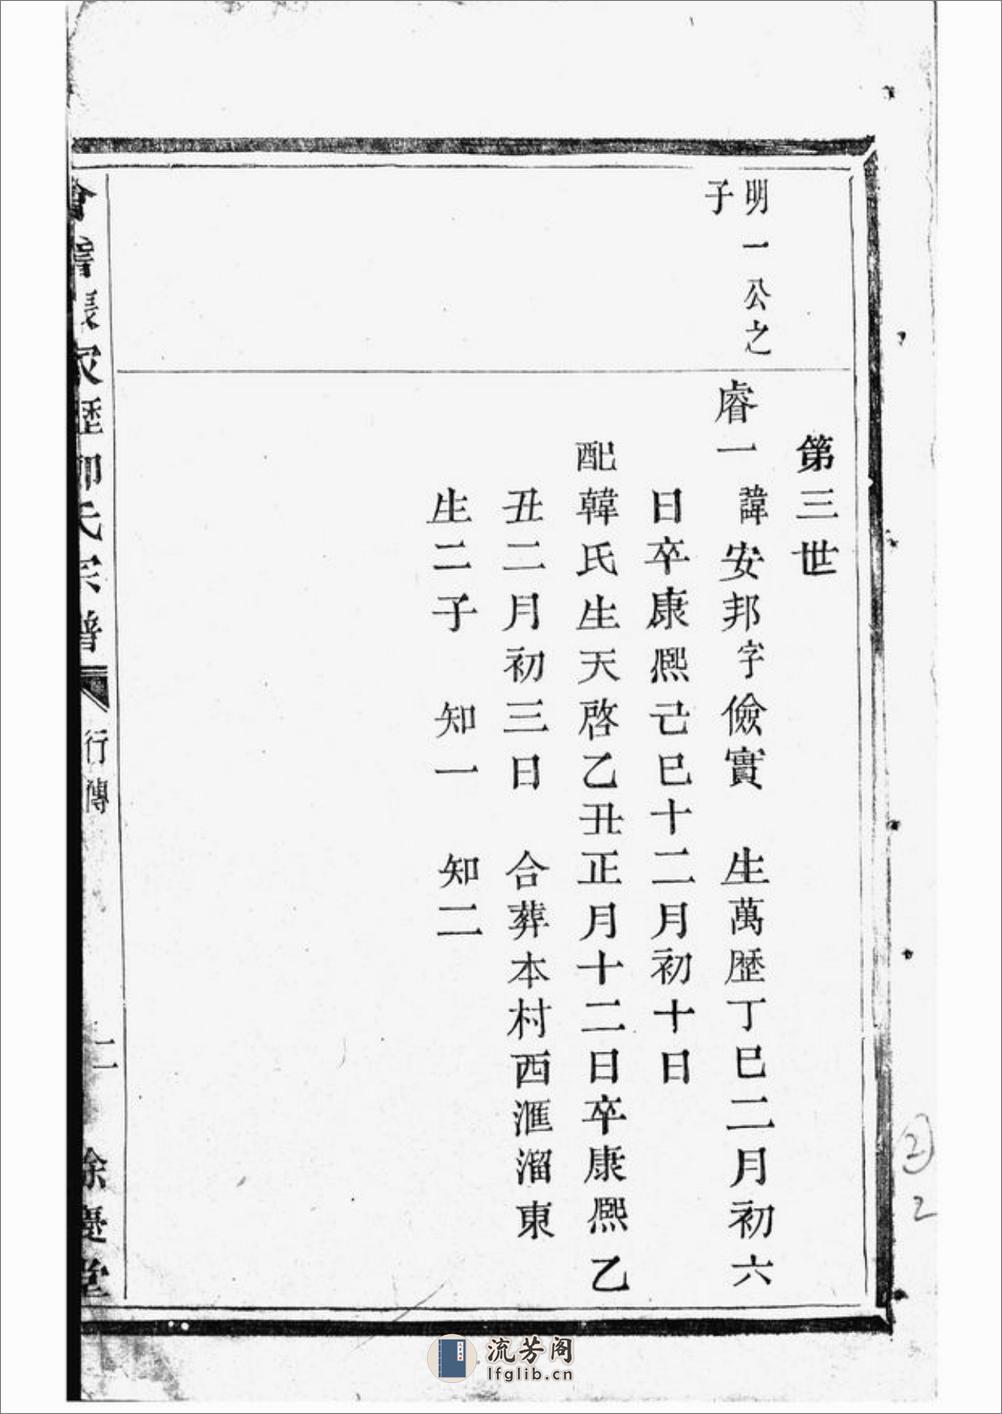 第三世
明一公之
子
睿一諱安邦字儉實 生萬歷丁巳二月初六
日卒康熙己巳十二月初十日
配韓氏生天啓乙丑正月十二日卒康熙乙
丑二月初三日 合葬本村西滙溜東
生二子 知一 知二
會稽張家歷柳氏宗譜 行傳 二 餘慶堂
2
2
流芳阁
lfglib.cn